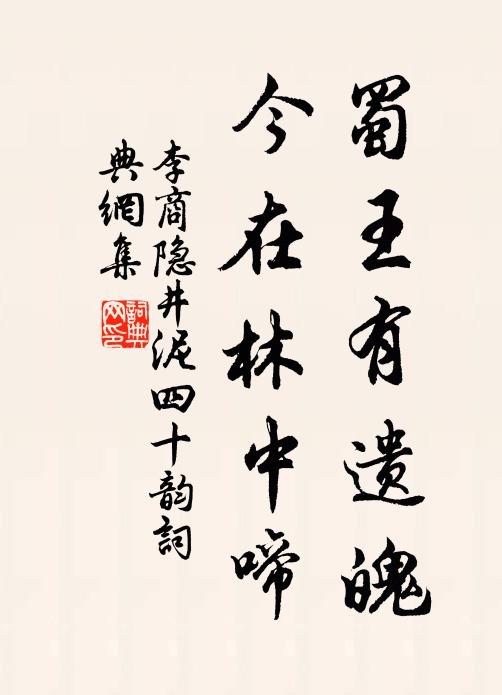 蜀王有遗魄
今在林中啼
李商隐井泥四十韵詞
典網集
詞典网印